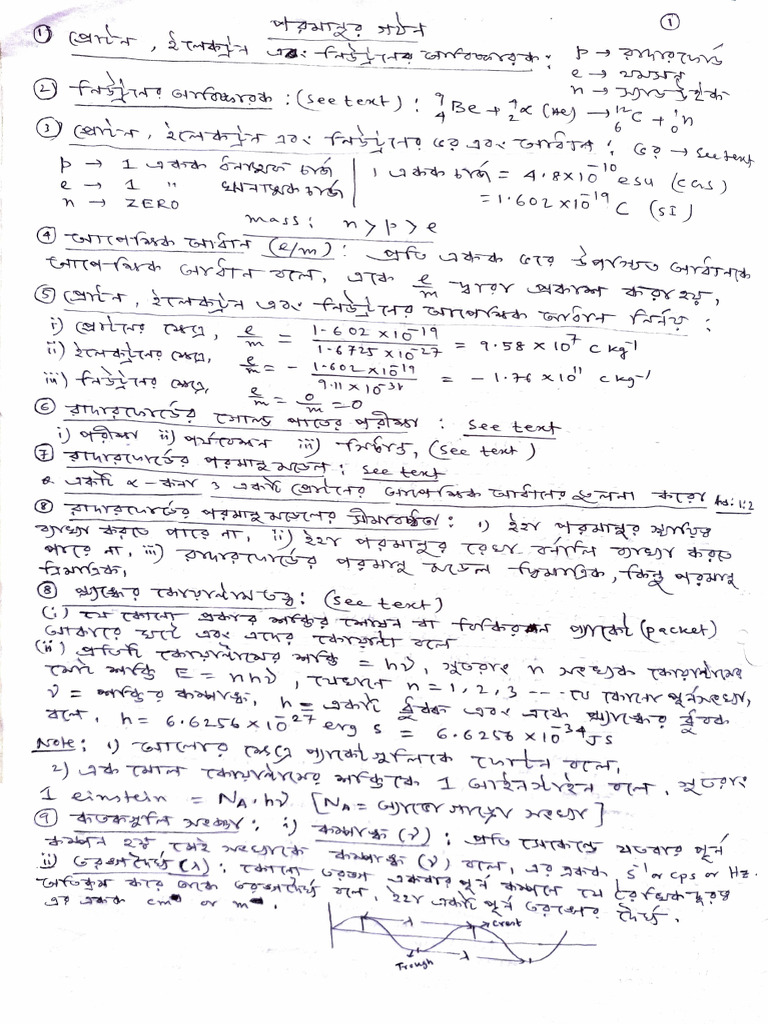 পরমাণুর গঠন
①
① প্রোটন, ইলেকট্রন এবং নিউট্রনের আবিষ্কারক: p → রাদারফোর্ড
e → থমসন
n → স্যাডউইক
② নিউট্রনের আবিষ্কারক: (see text): ⁹₄Be + ⁴₂α (He) → ¹²₆C + ¹₀n
③ প্রোটন, ইলেকট্রন এবং নিউট্রনের ভর এবং আধান: ভর → see text
p → 1 একক ধনাত্মক চার্জ | 1 একক চার্জ = 4.8×10⁻¹⁰ esu (CGS)
e → 1 " ঋণাত্মক চার্জ | = 1.602×10⁻¹⁹ C (SI)
n → ZERO
mass: n > p > e
④ আপেক্ষিক আধান (e/m): প্রতি একক ভরে উপস্থিত আধানকে
আপেক্ষিক আধান বলে, একে e/m দ্বারা প্রকাশ করা হয়,
⑤ প্রোটন, ইলেকট্রন এবং নিউট্রনের আপেক্ষিক আধান নির্ণয়:
i) প্রোটনের ক্ষেত্রে, e/m = 1.602×10⁻¹⁹ / 1.6725×10⁻²⁷ = 9.58×10⁷ C kg⁻¹
ii) ইলেকট্রনের ক্ষেত্রে, e/m = - 1.602×10⁻¹⁹ / 9.11×10⁻³¹ = -1.76×10¹¹ C kg⁻¹
iii) নিউট্রনের ক্ষেত্রে, e/m = 0/m = 0
⑥ রাদারফোর্ডের গোল্ড পাতের পরীক্ষা: see text
i) পরীক্ষা ii) পর্যবেক্ষন iii) সিদ্ধান্ত, (see text)
⑦ রাদারফোর্ডের পরমাণু মডেল: see text
একটি α-কনা ও একটি প্রোটনের আপেক্ষিক আধানের তুলনা করো Ans: 1:2
⑧ রাদারফোর্ডের পরমাণু মডেলের সীমাবদ্ধতা: i) ইহা পরমাণুর স্থায়িত্ব
ব্যাখ্যা করতে পারে না, ii) ইহা পরমাণুর রেখা বর্নালি ব্যাখ্যা করতে
পারে না, iii) রাদারফোর্ডের পরমাণু মডেল দ্বিমাত্রিক, কিন্তু পরমাণু
ত্রিমাত্রিক,
⑧ প্ল্যাঙ্কের কোয়ান্টাম তত্ত্ব: (see text)
(i) যে কোনো প্রকার শক্তির শোষন বা বিকিরন প্যাকেট (packet)
আকারে ঘটে এবং এদের কোয়ান্টা বলে
(ii) প্রতিটি কোয়ান্টামের শক্তি = hν, সুতরাং n সংখ্যক কোয়ান্টামের
মোট শক্তি E = nhν, যেখানে n = 1, 2, 3 --- যে কোনো পূর্নসংখ্যা,
ν = শক্তির কম্পাঙ্ক, h = একটি ধ্রুবক এবং একে প্ল্যাঙ্কের ধ্রুবক
বলে, h = 6.6256×10⁻²⁷ erg s = 6.6256×10⁻³⁴ Js
Note: 1) আলোর ক্ষেত্রে প্যাকেটগুলিকে ফোটন বলে,
2) এক মোল কোয়ান্টামের শক্তিকে 1 আইনস্টাইন বলে, সুতরাং
1 einstein = N_A.hν [N_A = অ্যাভোগাড্রো সংখ্যা]
⑨ কতকগুলি সংজ্ঞা: i) কম্পাঙ্ক (ν): প্রতি সেকেন্ডে যতবার পূর্ন
কম্পন হয় সেই সংখ্যাকে কম্পাঙ্ক (ν) বলে, এর একক, S⁻¹ or cps or Hz.
ii) তরঙ্গদৈর্ঘ্য (λ): কোনো তরঙ্গ একবার পূর্ন কম্পনে যে রৈখিক দূরত্ব
অতিক্রম করে তাকে তরঙ্গদৈর্ঘ্য বলে, ইহা একটি পূর্ন তরঙ্গের দৈর্ঘ্য,
এর একক cm or m.
λ
Crest
Trough
λ